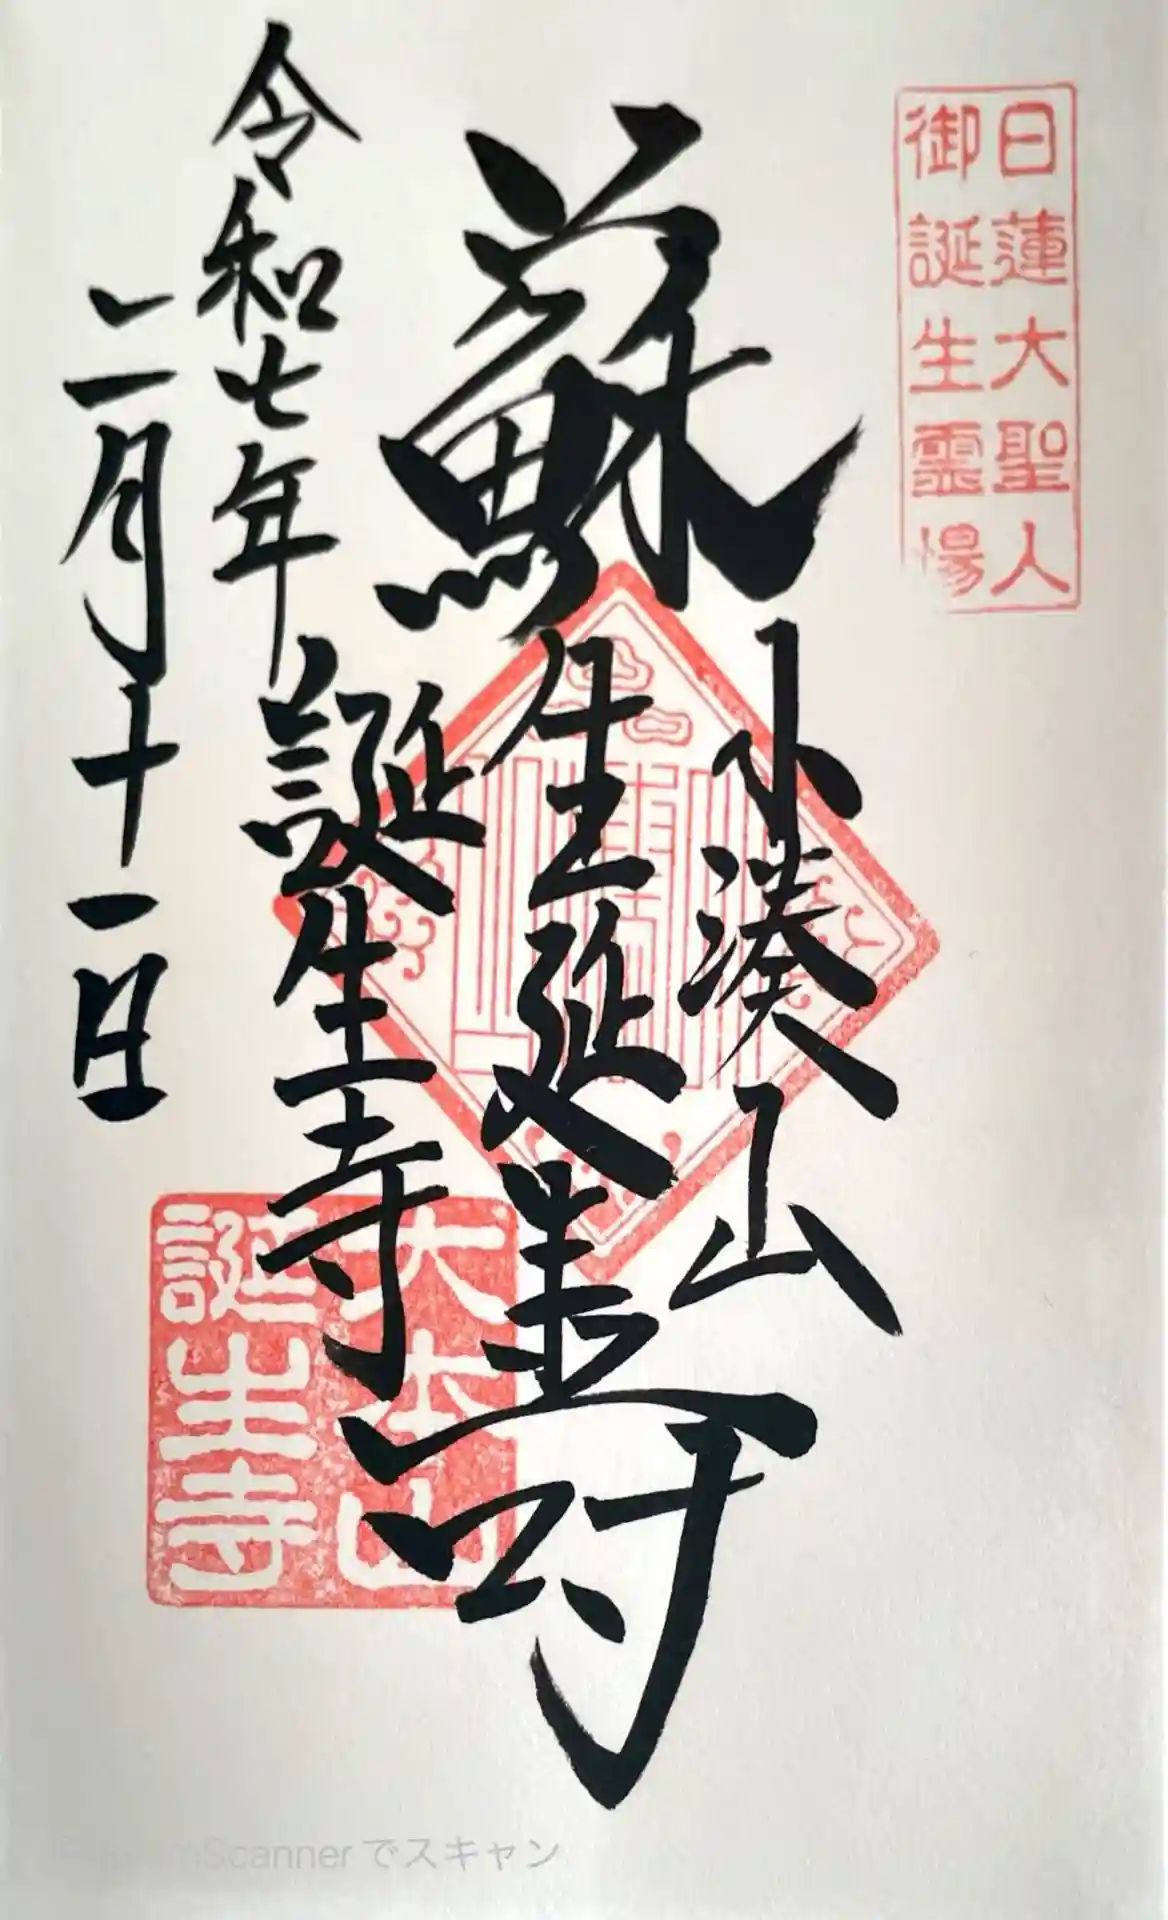 日蓮大聖人
御誕生霊場
小湊山
蘇生延壽
誕生寺
令和七年
二月十一日
大本山
誕生寺
Scanner でスキャン